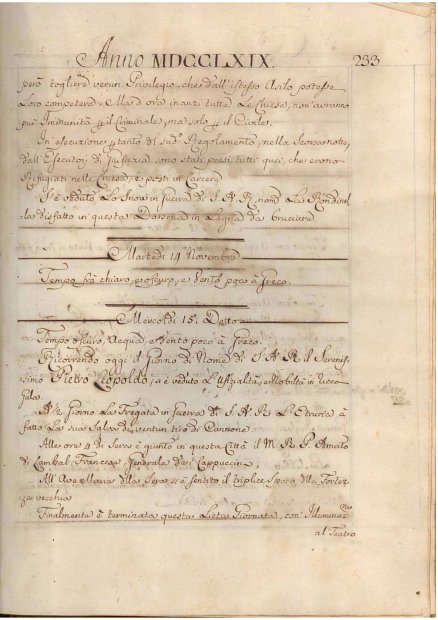 Anno MDCCLXIX. 233
però togliere verun Privilegio, che dall'istesso Asilo potesse
Loro competere. Mà d'ora inanzi tutte Le Chiese, non avranno
più Immunità p il Criminale, ma solo p il Civile.
In esecuzione ptanto di sudº Regolamento, nella Scorsa notte,
dall'Esecutori di Giustizia sono stati presi tutti quei, che erono
Refugiati nelle Chiese, e posti in Carcere
S'è veduto Lo Snow in Guerra di S. A. R. nomº La Rondinel
la disfatto in questa Darsena in Legna da bruciare
Martedì 14 Novembre
Tempo frà chiaro, e oscuro, e Vento poco à Greco.
Mercoldì 15. Detto
Tempo oscuro, Acqua, e Vento poco à Greco.
Ricorrendo oggi il Giorno di Nome di S. A. R. il Serenis
simo Pietro Leopoldo, s'è veduto L'Ufizialità, e Nobiltà in ricca
Gala.
A ½ Giorno La Fregata in Guerra di S. A. R. L'Etruria à
fatto La sua Salva di ventun tiro di Cannone
Alle ore di Sera è giunto in questa Città il M. R. P. Amato
di Francese, Generale de Cappuccini
All'Ave Maria della Sera si è sentito il triplice Sparo della Fortez
za vecchia
Finalmente è terminata questa Lieta Giornata, con Illuminazne
al Teatro